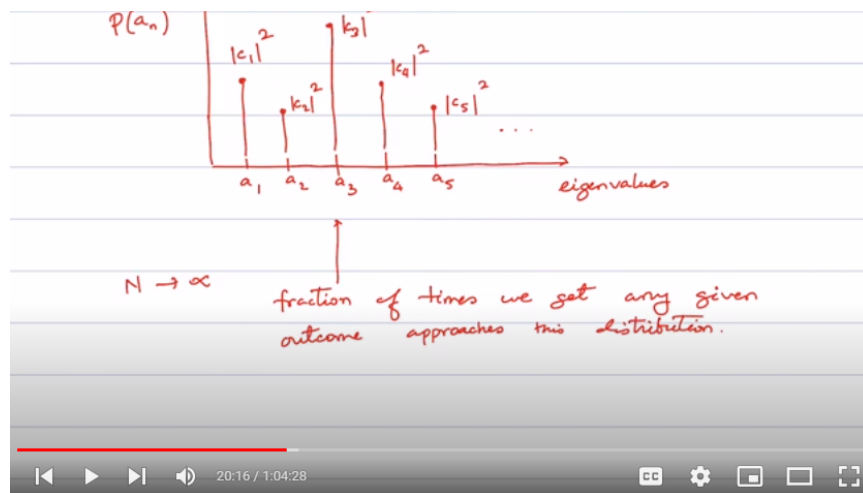 P(aₙ)
|c₁|² |c₂|² |c₃|² |c₄|² |c₅|² ...
a₁ a₂ a₃ a₄ a₅ eigenvalues
N → ∝
fraction of times we get any given
outcome approaches this distribution.
20:16 / 1:04:28
CC